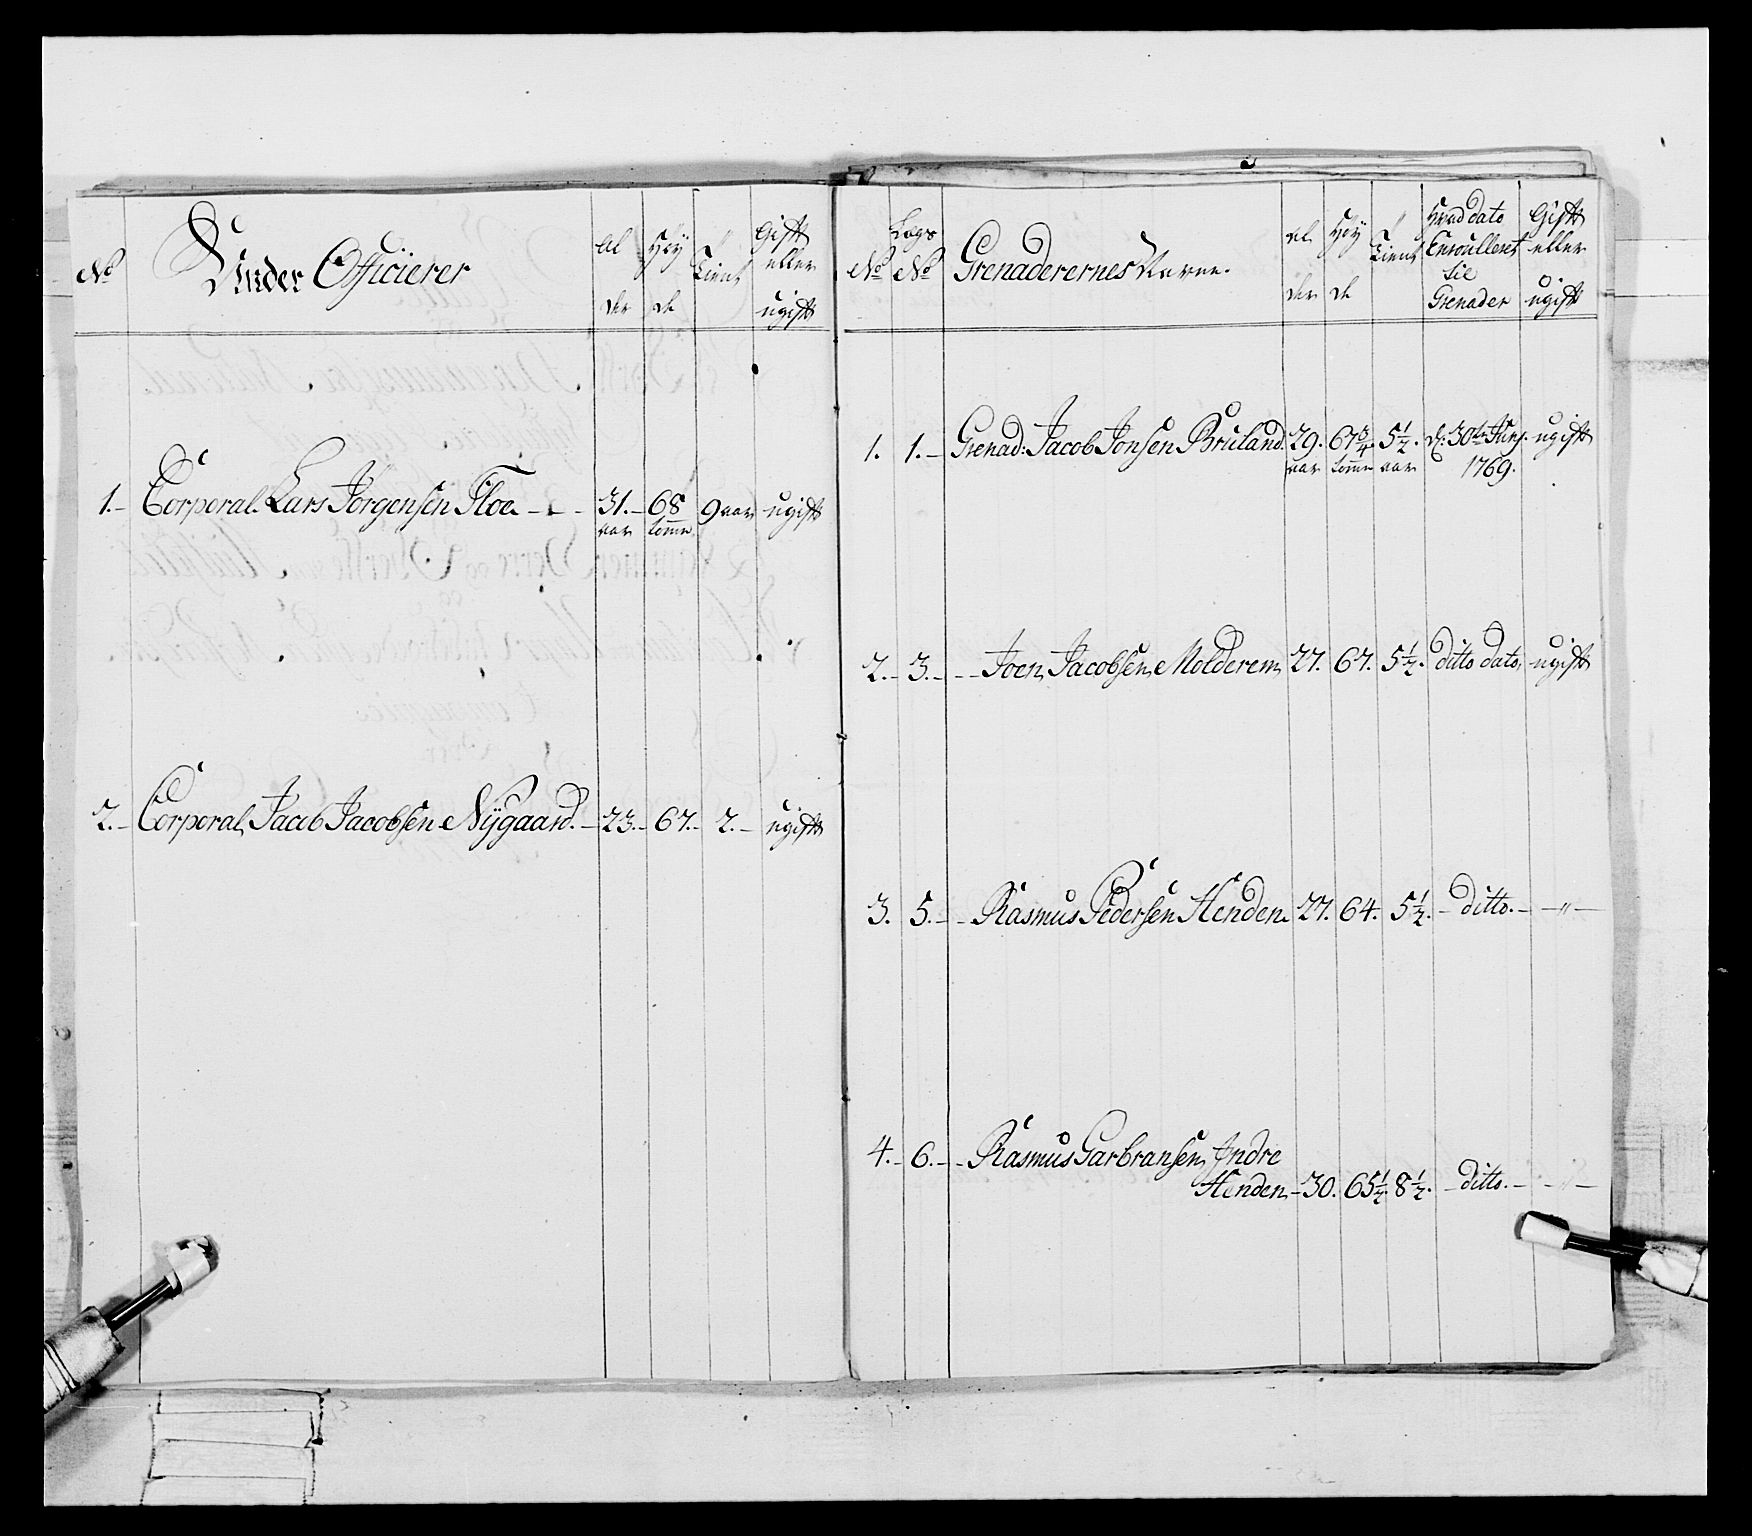 No Under Officierer Al der Høy de Tient Gift eller ugift
1. Corporal Lars Jørgensen Floe 31. aar 68 tomme 9 aar ugift
2. Corporal Jacob Jacobsen Nÿgaard. 23. 67. 2. ugift
No Lægs No Grenaderernes Navne. Al der Høy de Tient Hvad dato Enroulleret til Grenader Gift eller ugift
1. 1. Grenad: Jacob Jonsen Bruland. 29. aar 67 3/4 tomme 5 1/2. aar d: 30te Junj. 1769. ugift
2. 3. Joen Jacobsen Molderem 27. 67. 5 1/2. ditto dato, ugift
3. 5. Rasmus Pedersen Henden 27. 64. 5 1/2. ditto. "
4. 6. Rasmus Garbransen Indre
Henden 30. 65 1/2 8 1/2. ditto. "